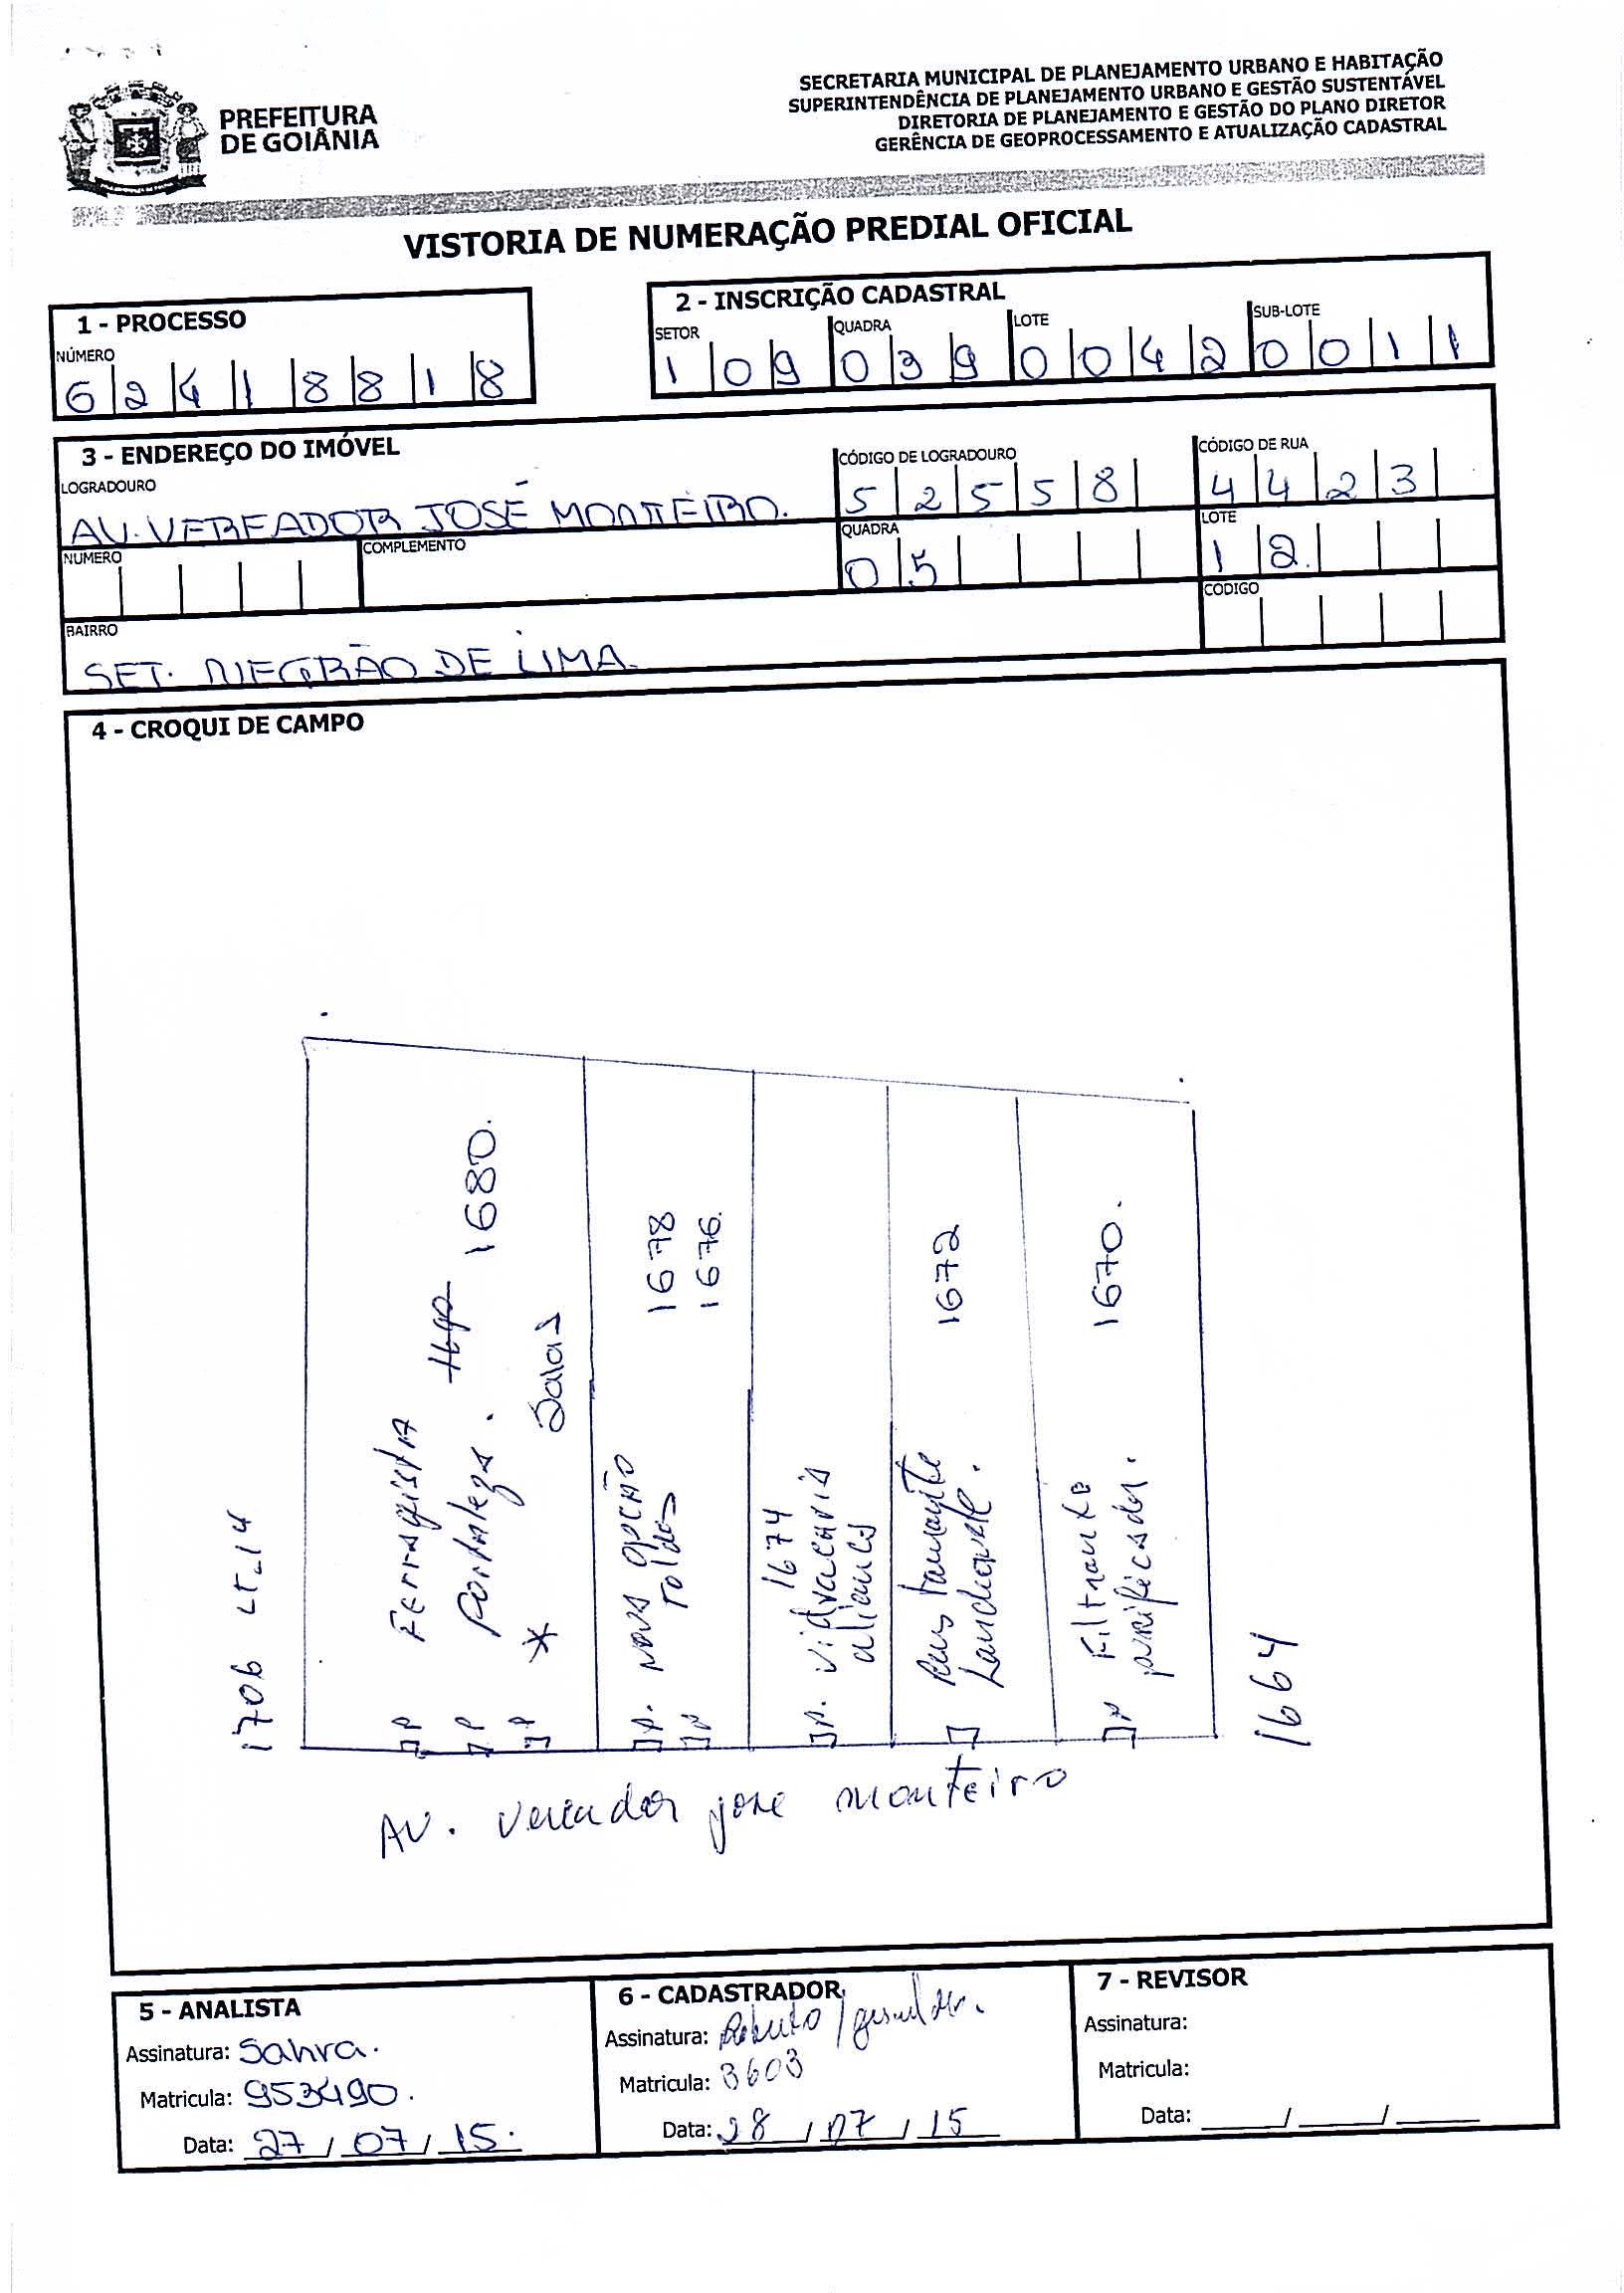 PREFEITURA
DE GOIÂNIA
SECRETARIA MUNICIPAL DE PLANEJAMENTO URBANO E HABITAÇÃO
SUPERINTENDÊNCIA DE PLANEJAMENTO URBANO E GESTÃO SUSTENTÁVEL
DIRETORIA DE PLANEJAMENTO E GESTÃO DO PLANO DIRETOR
GERÊNCIA DE GEOPROCESSAMENTO E ATUALIZAÇÃO CADASTRAL
VISTORIA DE NUMERAÇÃO PREDIAL OFICIAL
1 - PROCESSO
NÚMERO
6 2 4 1 8 8 1 8
2 - INSCRIÇÃO CADASTRAL
SETOR QUADRA LOTE SUB-LOTE
1 0 9 0 3 9 0 0 4 2 0 0 1 1
3 - ENDEREÇO DO IMÓVEL
LOGRADOURO
AV. VEREADOR JOSÉ MONTEIRO.
CÓDIGO DE LOGRADOURO
5 2 5 5 8
CÓDIGO DE RUA
4 4 2 3
NUMERO
COMPLEMENTO
QUADRA
0 5
LOTE
1 2.
BAIRRO
SET. NEGRÃO DE LIMA.
CODIGO
4 - CROQUI DE CAMPO
1706 LT-14
Ferragista
Portalega. 1680.
* Salas
P
P
P
P. NOVA OPÇÃO 1678
P Toldos 1676.
1674
P. vidraçaria
aliança
Restaurante 1672
Lanchonete.
P Filtrante 1670.
purificador.
1664
AV. Vereador jose monteiro
5 - ANALISTA
Assinatura: Sahra.
Matricula: 953490.
Data: 27 / 07 / 15.
6 - CADASTRADOR
Assinatura: Roberto /
Matricula: 3603
Data: 28 / 07 / 15
7 - REVISOR
Assinatura:
Matricula:
Data: ____/____/____